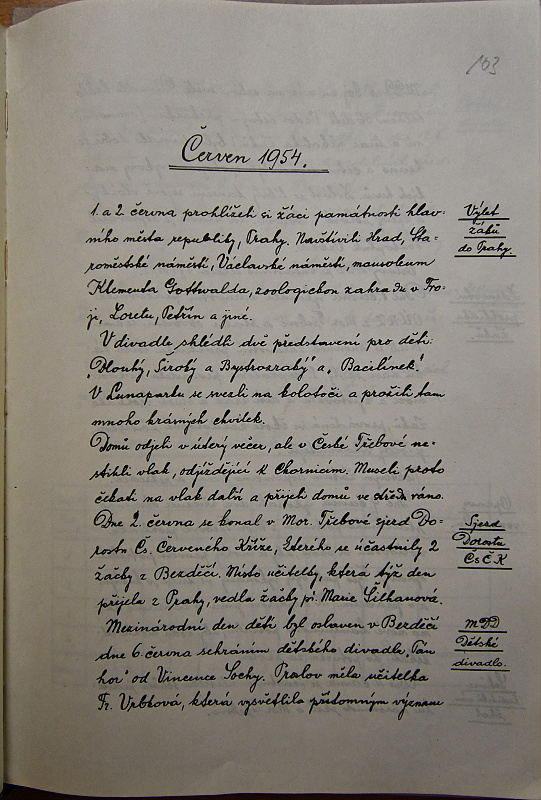 103
Červen 1954.
1. a 2. června prohlíželi si žáci památnosti hlav-
ního města republiky, Prahy. Navštívili Hrad, Sta-
roměstské náměstí, Václavské náměstí, mausoleum
Klementa Gottwalda, zoologickou zahradu v Tro-
ji, Loretu, Petřín a jiné.
Výlet
žáků
do Prahy.
V divadle shlédli dvě představení pro děti:
"Dlouhý, Široký a Bystrozraký" a "Bacilínek".
V Lunaparku se svezli na kolotoči a prožili tam
mnoho krásných chvilek.
Domů odjeli v úterý večer, ale v České Třebové ne-
stihli vlak, odjíždějící k Chornicím. Museli proto
čekati na vlak další a přijeli domů ve středu ráno.
Dne 2. června se konal v Mor. Třebové sjezd Do-
rostu Čs. Červeného Kříže, kterého se účastnily 2
žačky z Bezděčí. Místo učitelky, která týž den
přijela z Prahy, vedla žačky pí. Marie Silhanová.
Sjezd
Dorostu
ČsČK
Mezinárodní den dětí byl oslaven v Bezděčí
dne 6. června sehráním dětského divadla "Pán
hor" od Vincence Sochy. Proslov měla učitelka
Fr. Vrbková, která vysvětlila přítomným význam
MDD
Dětské
divadlo.